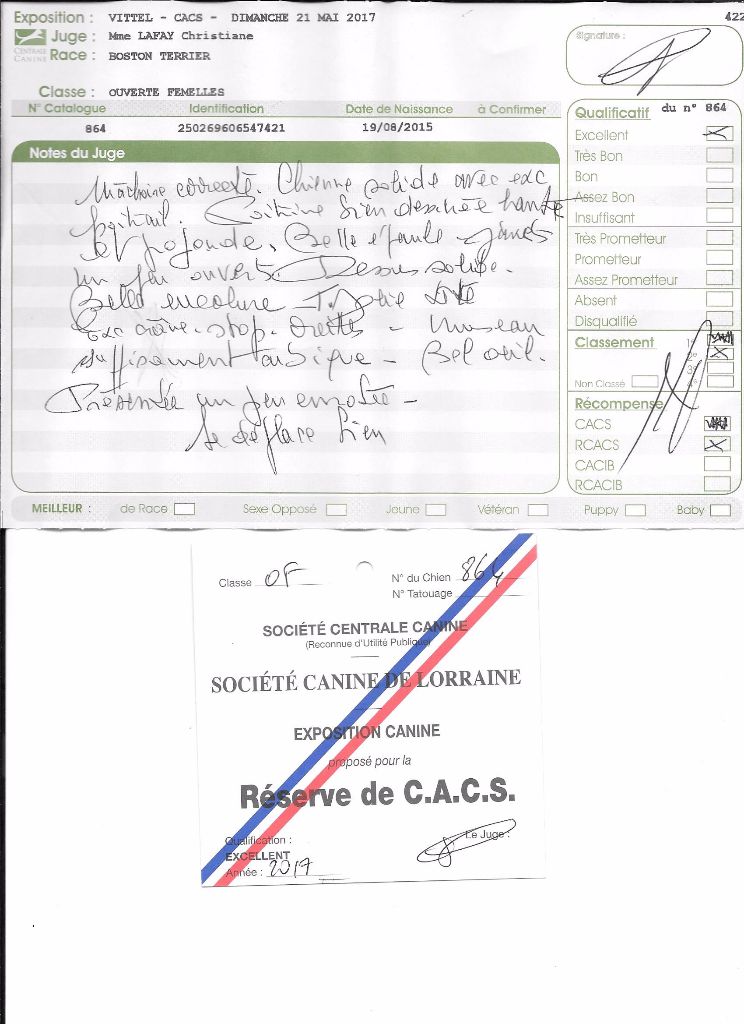 Exposition : VITTEL - CACS - DIMANCHE 21 MAI 2017
422
CENTRALE CANINE
Juge : Mme LAFAY Christiane
Race : BOSTON TERRIER
Signature :
Classe : OUVERTE FEMELLES
N° Catalogue Identification Date de Naissance à Confirmer
864 250269606547421 19/08/2015
Notes du Juge
Mâchoire correcte. Chienne solide avec exc
poitrail. Poitrine bien dessinée haute
et profonde. Belle épaule - 
un peu ouverts. Dessus solide.
Belle encolure T. jolie tête
Exc crâne - stop - 
suffisamment cubique - Bel oeil.
Présentée un peu
Se déplace bien
Qualificatif du n° 864
Excellent
Très Bon
Bon
Assez Bon
Insuffisant
Très Prometteur
Prometteur
Assez Prometteur
Absent
Disqualifié
Classement 1e
2e
3e
Non Classé 4e
Récompense
CACS
RCACS
CACIB
RCACIB
MEILLEUR : de Race Sexe Opposé Jeune Vétéran Puppy Baby
Classe OF N° du Chien 864
N° Tatouage
SOCIÉTÉ CENTRALE CANINE
(Reconnue d'Utilité Publique)
SOCIÉTÉ CANINE DE LORRAINE
EXPOSITION CANINE
proposé pour la
Réserve de C.A.C.S.
Qualification : Le Juge :
EXCELLENT
Année : 2017